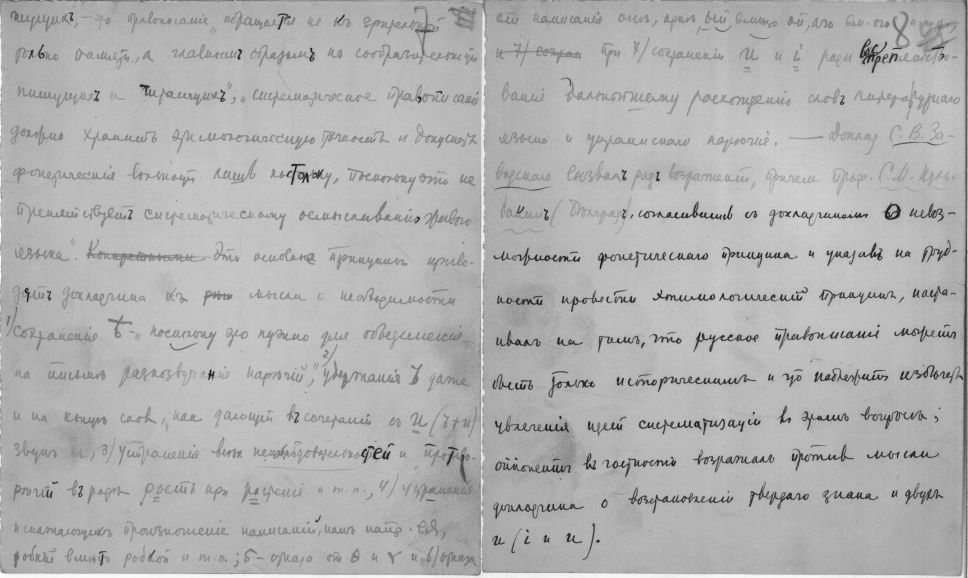 пишущихъ, — то правописаніе „обращается не къ зрительной 7
только памяти, а главнымъ образомъ къ сообразительности
пишущихъ и читающихъ", „систематическое правописаніе
должно хранить этимологическую точность и допускать
фонетическія вольности лишь постольку, поскольку это не
препятствуетъ систематическому осмысливанію живого
языка". Эти основные принципы приво-
дятъ докладчика къ мысли о необходимости
1) сохраненія ѣ — „поскольку это нужно для объединенія
на письмѣ разнозвучанія нарѣчій", 2) удержанія ъ даже
и на концѣ слов, какъ дающій въ сочетаніи съ и (ъ+и)
звукъ ы, 3) устраненія непослѣдовательностей и проти-
рѣчій въ родѣ ростъ при растеніе и т. п., 4) устраненія
искажающихъ произношеніе написаній, какъ напр. ея,
робкій вмѣсто робкой и т. п.; 5 — отказа от ѳ и ѵ и 6) отказа
от написанія онѣ, однѣ, ый вмѣсто ой, аго 8
и 7) сохран при 7) сохраненіи и и і ради воспрепятство-
ванія дальнѣйшему расхожденію словъ литературнаго
языка и украинскаго нарѣчія. — Доклад С. В. За-
вадскаго вызвалъ рядъ возраженій, причем проф. С. М. Куль-
бакинъ (Бѣлград), согласившись съ докладчикомъ о невоз-
можности фонетическаго принципа и указавъ на труд-
ность провести этимологическій принципъ, наста-
ивалъ на томъ, что русское правописаніе можетъ
быть только историческимъ и что надлежитъ избѣгать
увлеченія идеей систематизаціи въ этомъ вопросѣ;
оппонентъ въ частности возражалъ противъ мысли
докладчика о возстановленіи твердаго знака и двухъ
и (і и и).